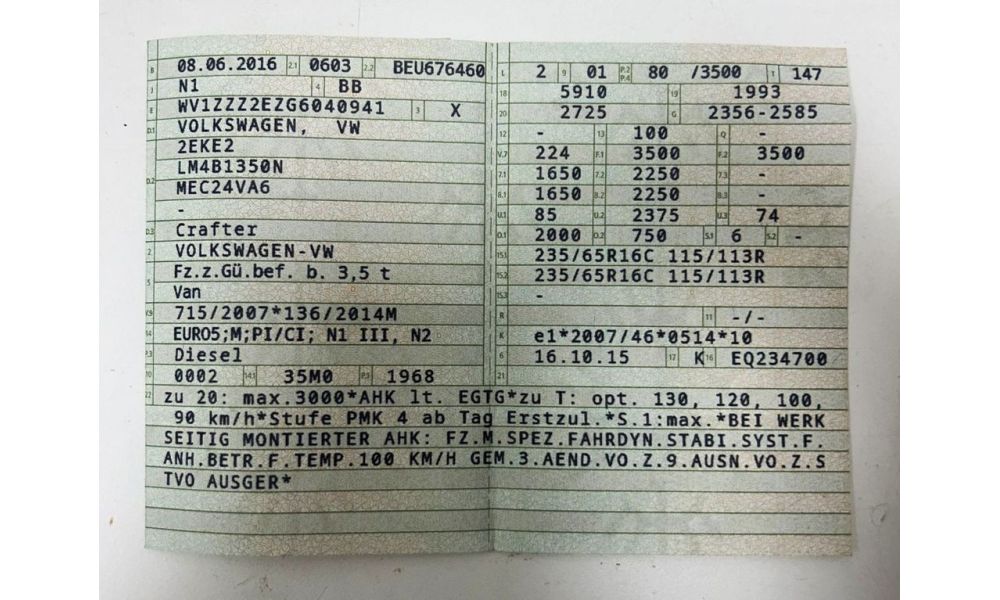 B 08.06.2016 2.1 0603 2.2 BEU676460
J N1 4 BB
E WV1ZZZ2EZG6040941 3 X
D.1 VOLKSWAGEN, VW
2EKE2
D.2 LM4B1350N
MEC24VA6
-
D.3 Crafter
2 VOLKSWAGEN-VW
5 Fz.z.Gü.bef. b. 3,5 t
Van
V.9 715/2007*136/2014M
14 EURO5;M;PI/CI; N1 III, N2
P.3 Diesel
10 0002 14.1 35M0 P.1 1968
L 2 9 01 P.2 P.4 80 /3500 T 147
18 5910 19 1993
20 2725 G 2356-2585
12 - 13 100 Q -
V.7 224 F.1 3500 F.2 3500
7.1 1650 7.2 2250 7.3 -
8.1 1650 8.2 2250 8.3 -
U.1 85 U.2 2375 U.3 74
O.1 2000 O.2 750 S.1 6 S.2 -
15.1 235/65R16C 115/113R
15.2 235/65R16C 115/113R
15.3 -
R 11 -/-
K e1*2007/46*0514*10
6 16.10.15 17 K 16 EQ234700
21
22 zu 20: max.3000*AHK lt. EGTG*zu T: opt. 130, 120, 100,
90 km/h*Stufe PMK 4 ab Tag Erstzul.*S.1:max.*BEI WERK
SEITIG MONTIERTER AHK: FZ.M.SPEZ.FAHRDYN.STABI.SYST.F.
ANH.BETR.F.TEMP.100 KM/H GEM.3.AEND.VO.Z.9.AUSN.VO.Z.S
TVO AUSGER*